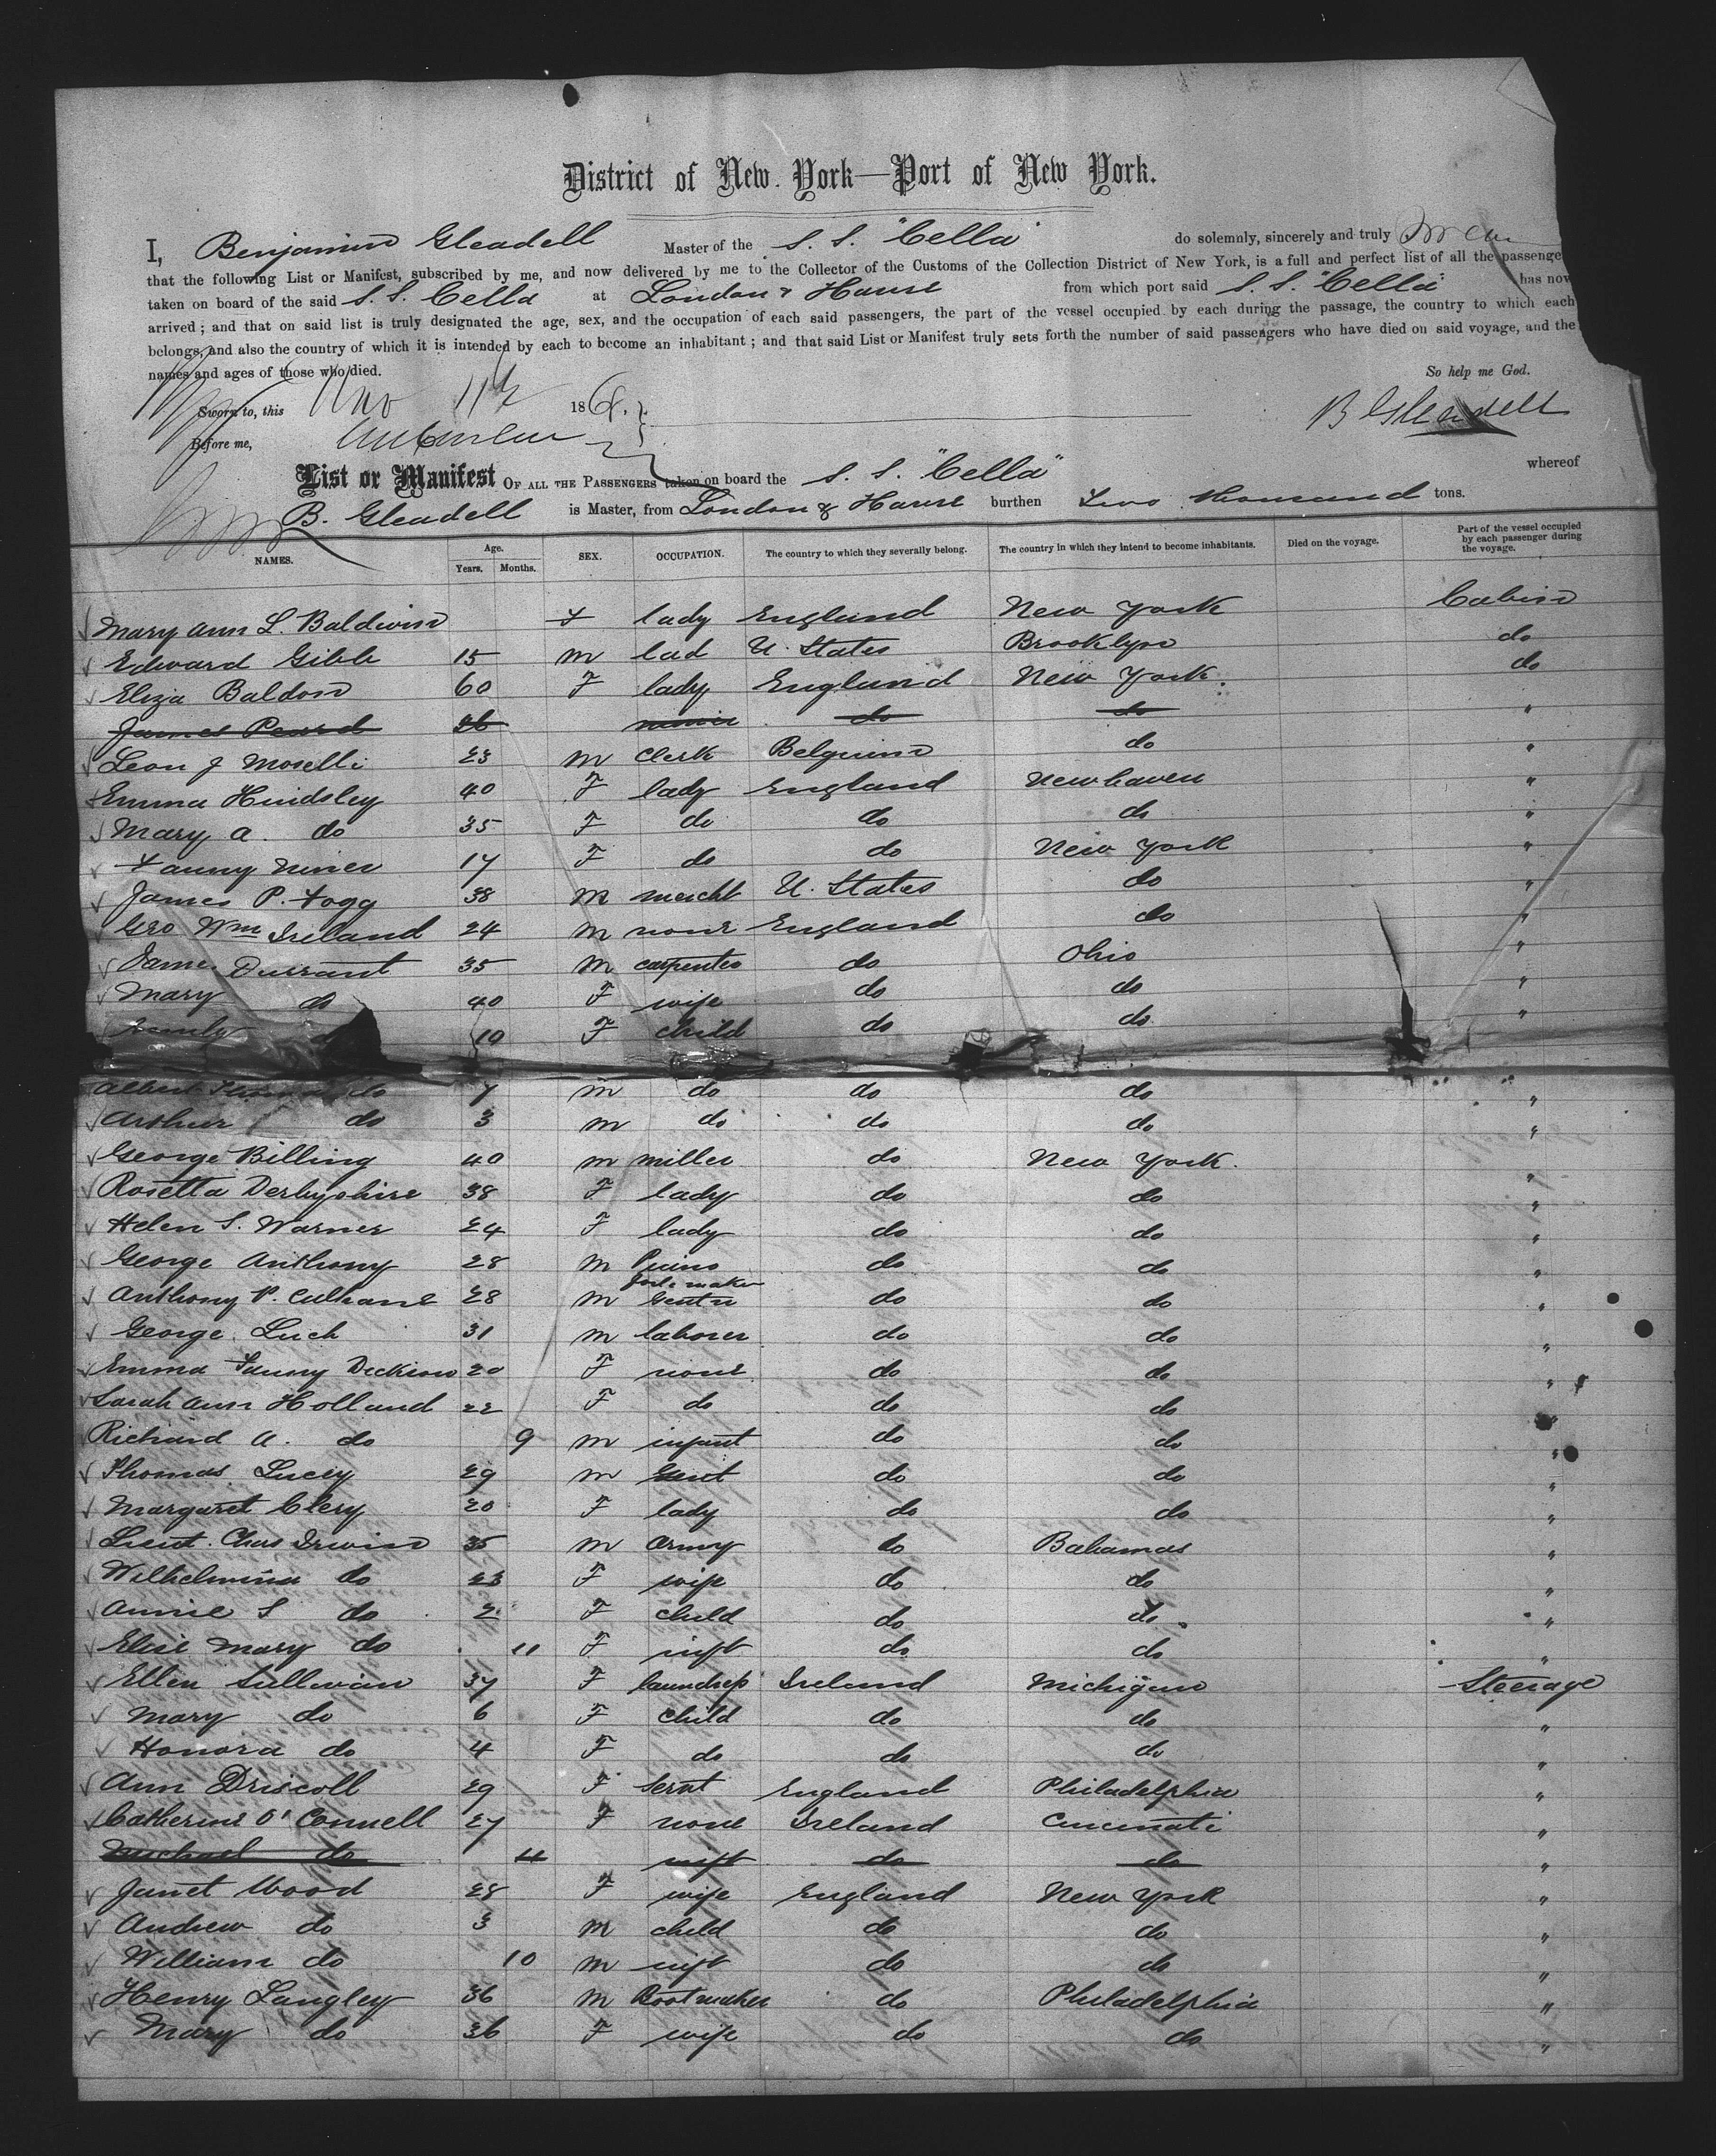 District of New York—Port of New York.
I, Benjamin Gleadell Master of the S. S. "Cella" do solemnly, sincerely and truly
that the following List or Manifest, subscribed by me, and now delivered by me to the Collector of the Customs of the Collection District of New York, is a full and perfect list of all the passenge
taken on board of the said S. S. Cella at London & Havre from which port said S. S. "Cella" has now
arrived; and that on said list is truly designated the age, sex, and the occupation of each said passengers, the part of the vessel occupied by each during the passage, the country to which each
belongs, and also the country of which it is intended by each to become an inhabitant; and that said List or Manifest truly sets forth the number of said passengers who have died on said voyage, and the
names and ages of those who died. So help me God.
Sworn to, this Nov 11th 1868. B Gleadell
Before me,
List or Manifest OF ALL THE PASSENGERS taken on board the S. S. "Cella" whereof
B. Gleadell is Master, from London & Havre burthen Two thousand tons.
NAMES. Age. Years. Months. SEX. OCCUPATION. The country to which they severally belong. The country in which they intend to become inhabitants. Died on the voyage. Part of the vessel occupied by each passenger during the voyage.
Mary Ann L. Baldwin F lady England New York Cabin
Edward Gibb 15 M lad U. States Brooklyn do
Eliza Baldon 60 F lady England New York. do
James Peard 26 do do "
Leon J Moselli 23 M Clerk Belguim do "
Emma Hindsley 40 F lady England Newhaven "
Mary A. do 35 F do do do "
Fanny Niner 17 F do do New York "
James P. Fogg 38 M mercht U. States do "
Geo Wm Ireland 24 M none England do "
James Durrant 35 M carpenter do Ohio "
Mary do 40 F wife do do "
10 F child do do "
Albert do 7 M do do do "
Arthur do 3 M do do do "
George Billing 40 M miller do New York. "
Rosetta Derbyshire 38 F lady do do "
Helen S. Warner 24 F lady do do "
George Anthony 28 M Piano forte maker do do "
Anthony P. Culhane 28 M do do "
George Luch 31 M laborer do do "
Emma Fanny Dickison 20 F none do do "
Sarah Ann Holland 22 F do do do "
Richard A. do 9 M infant do do "
Thomas Lucey 29 M Gent do do "
Margaret Clery 20 F lady do do "
Lieut. Chas Irwin 35 M Army do Bahamas "
Wilhelmina do 23 F wife do do "
Annie S do 2 F child do do "
Elise Mary do 11 F inft do do "
Ellen Sullivan 37 F laundress Ireland Michigan Steerage
Mary do 6 F child do do "
Honora do 4 F do do do "
Ann Driscoll 29 F Servt England Philadelphia "
Catherine O'Connell 27 F none Ireland Cincinati "
Michael do 4 inft do do "
Janet Wood 28 F wife England New York "
Andrew do 3 M child do do "
William do 10 M inft do do "
Henry Langley 36 M Bootmaker do Philadelphia "
Mary do 36 F wife do do "